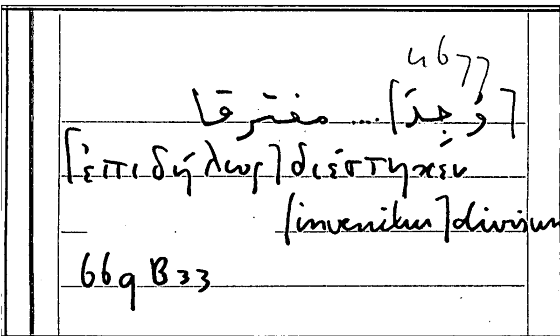 4677
[وُجِدَ] ... مفترقا
[ἐπιδήλως] διέστηκεν
[invenitur] divisum
669 B 33